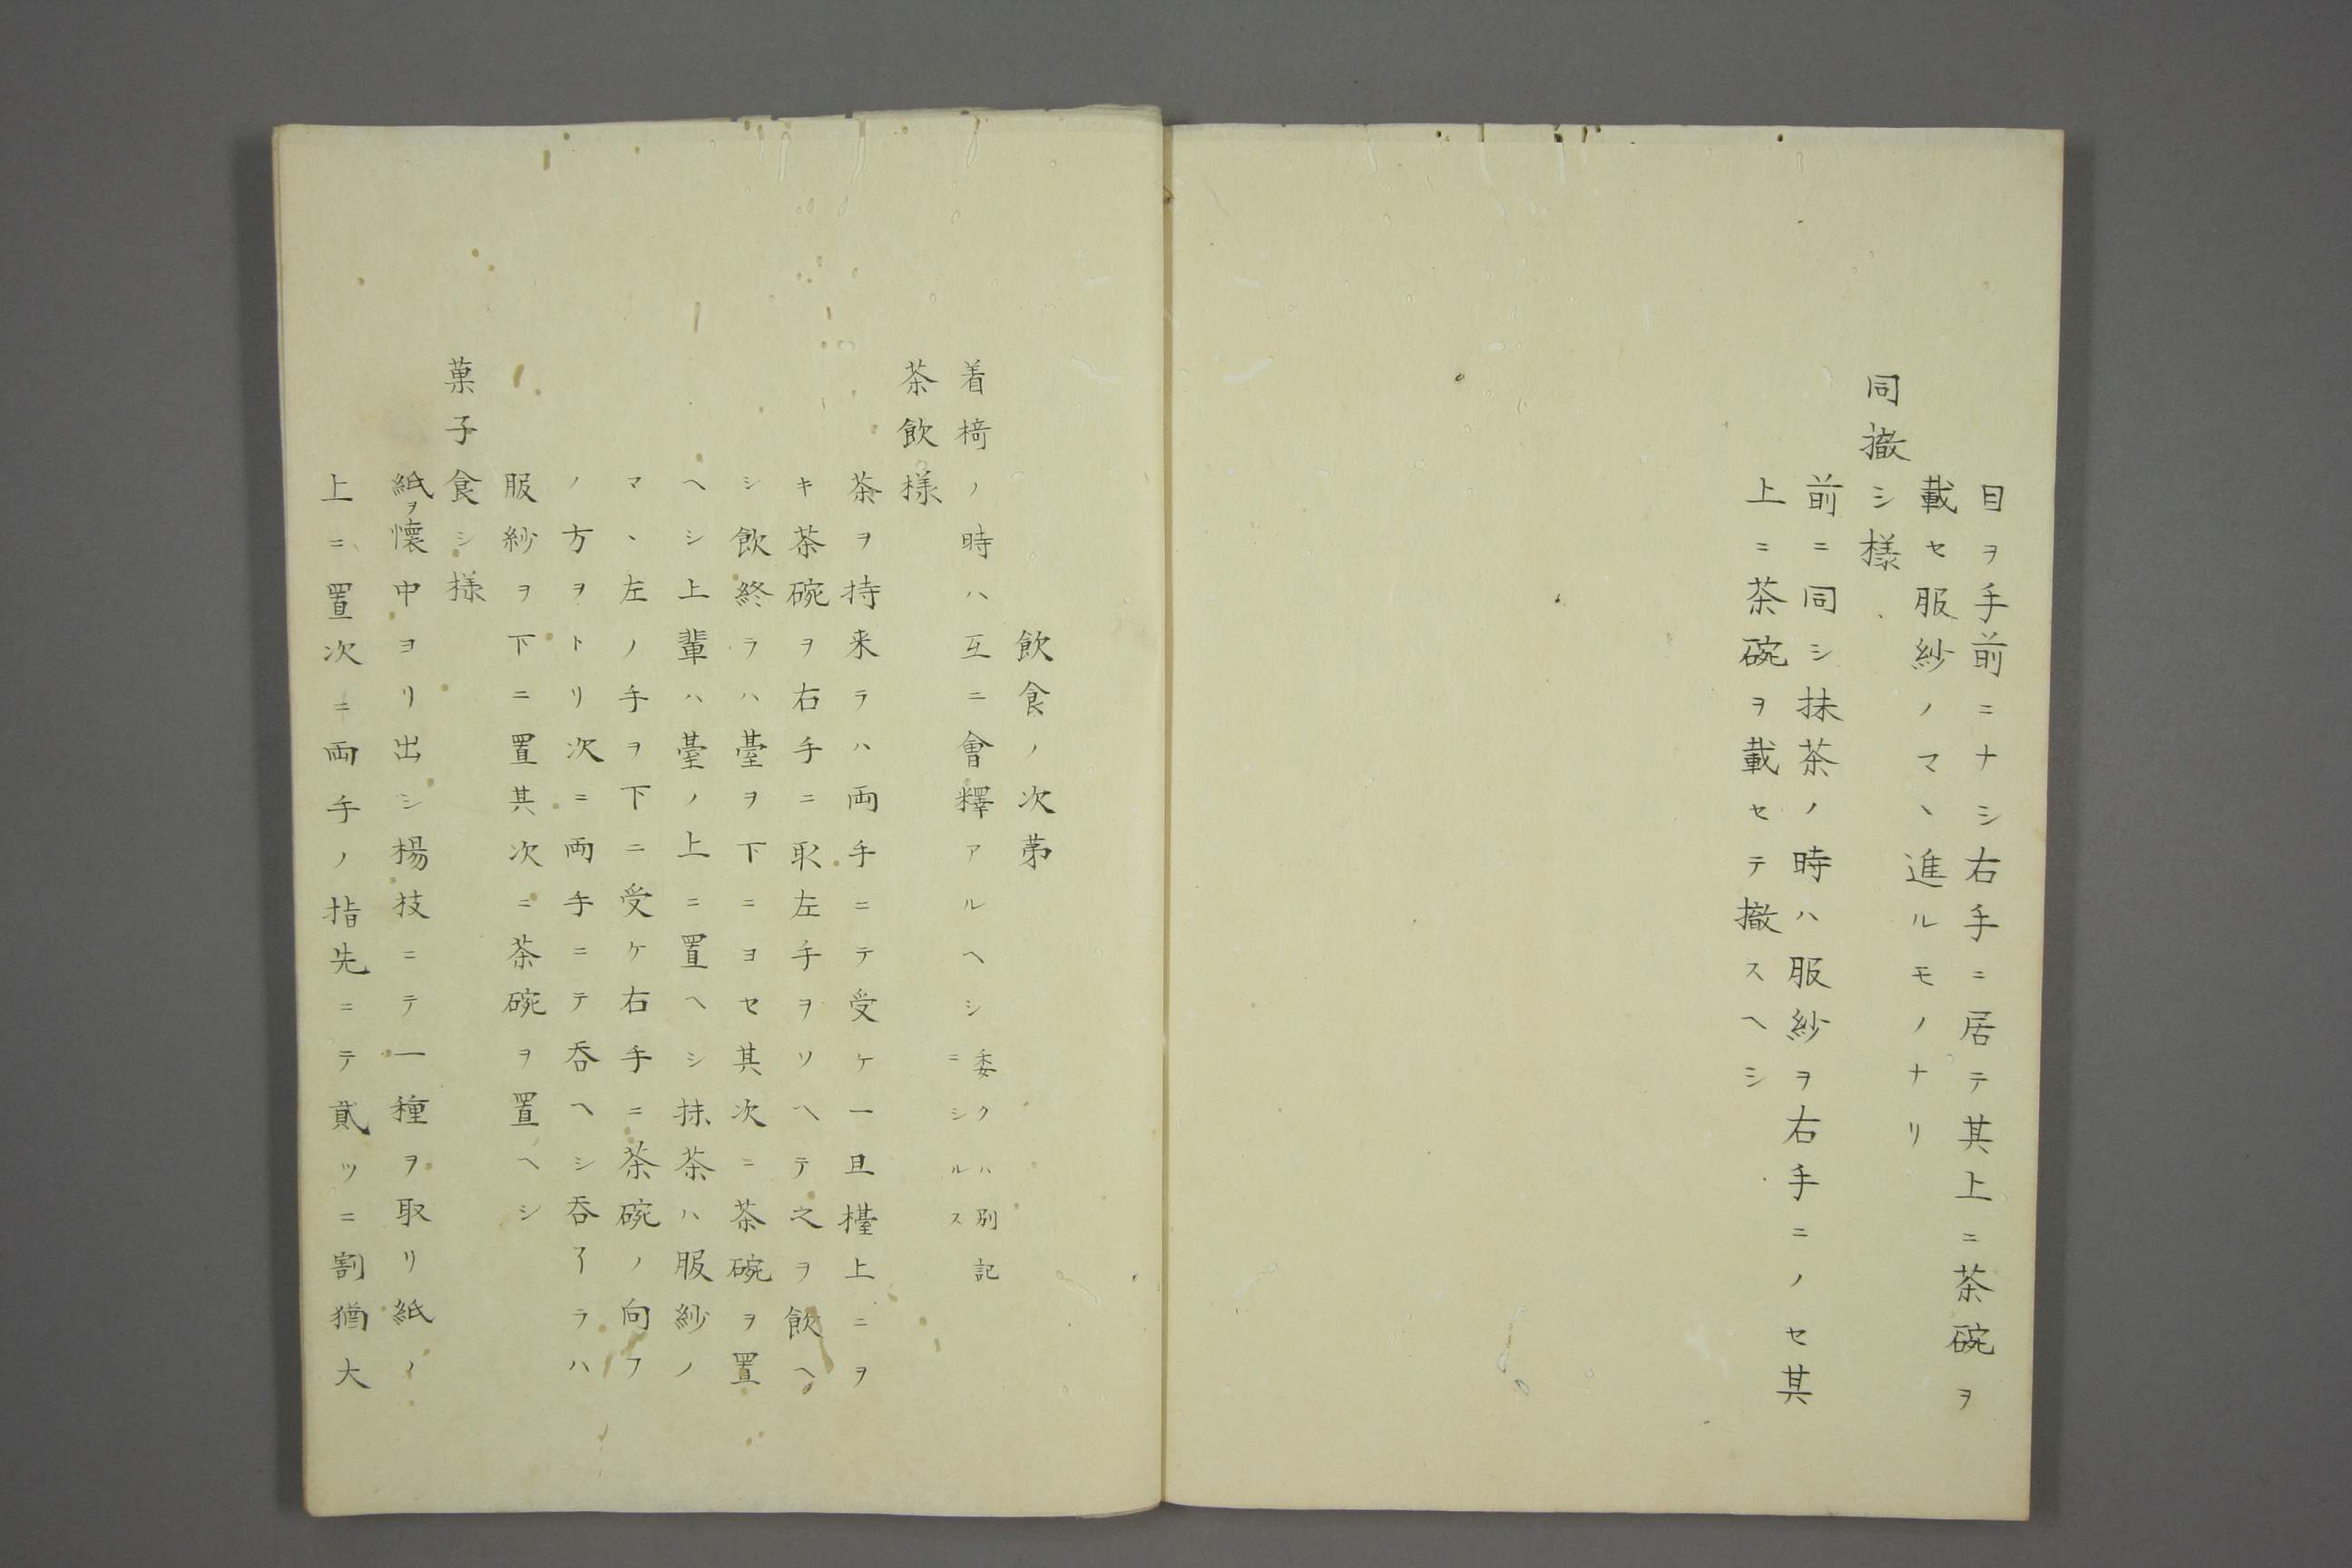 目ヲ手前ニナシ右手ニ居テ其上ニ茶碗ヲ
載セ服紗ノマヽ進ルモノナリ
同撤シ様
前ニ同シ抹茶ノ時ハ服紗ヲ右手ニノセ其
上ニ茶碗ヲ載セテ撤スヘシ
飲食ノ次第
着椅ノ時ハ互ニ會釋アルヘシ委クハ別記
ニシルス
茶飲様
茶ヲ持来ラハ両手ニテ受ケ一旦檯上ニヲ
キ茶碗ヲ右手ニ取左手ヲソヘテ之ヲ飲ヘ
シ飲終ラハ臺ヲ下ニヨセ其次ニ茶碗ヲ置
ヘシ上輩ハ臺ノ上ニ置ヘシ抹茶ハ服紗ノ
マヽ左ノ手ヲ下ニ受ケ右手ニ茶碗ノ向フ
ノ方ヲトリ次ニ両手ニテ呑ヘシ呑了ラハ
服紗ヲ下ニ置其次ニ茶碗ヲ置ヘシ
菓子食シ様
紙ヲ懐中ヨリ出シ楊枝ニテ一種ヲ取リ紙ノ
上ニ置次ニ両手ノ指先ニテ貮ッニ割猶大